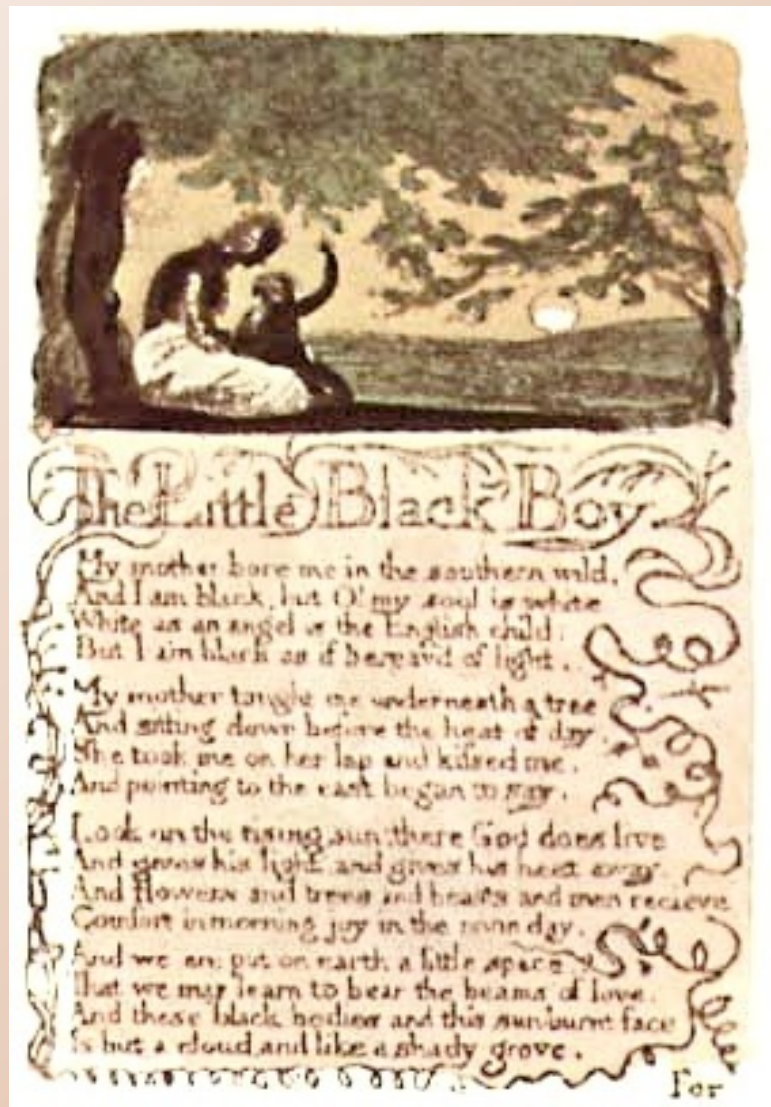 The Little Black Boy
My mother bore me in the southern wild,
And I am black, but O! my soul is white
White as an angel is the English child:
But I am black as if bereav'd of light.
My mother taught me underneath a tree
And sitting down before the heat of day.
She took me on her lap and kissed me,
And pointing to the east began to say.
Look on the rising sun: there God does live
And gives his light, and gives his heat away.
And flowers and trees and beasts and men recieve
Comfort in morning joy in the noon day.
And we are put on earth a little space.
That we may learn to bear the beams of love.
And these black bodies and this sun-burnt face
Is but a cloud, and like a shady grove.
For